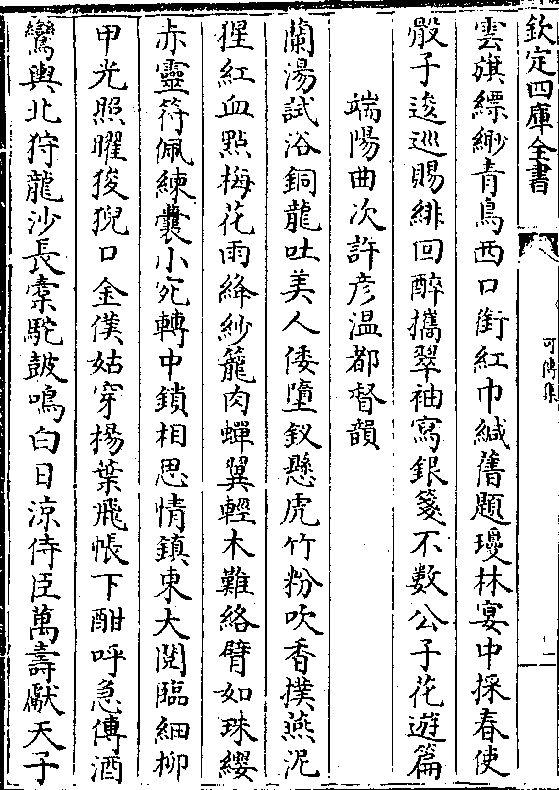 欽定四庫全書
可傳集
二
雲旗縹緲青鳥西口銜紅巾緘舊題瓊林宴中採春使
骰子逡巡賜緋回醉攜翠袖寫銀箋不數公子花遊篇
端陽曲次許彥温都督韻
蘭湯試浴銅龍吐美人倭墮釵懸虎竹粉吹香撲燕泥
猩紅血點梅花雨絳紗籠肉蟬翼輕木難絡臂如珠纓
赤靈符佩練囊小宛轉中鎖相思情鎮東大閱臨細柳
甲光照曜狻猊口金僕姑穿揚葉飛帳下酣呼急傳酒
鸞輿北狩龍沙長槖駝鼓鳴白日涼侍臣萬壽獻天子